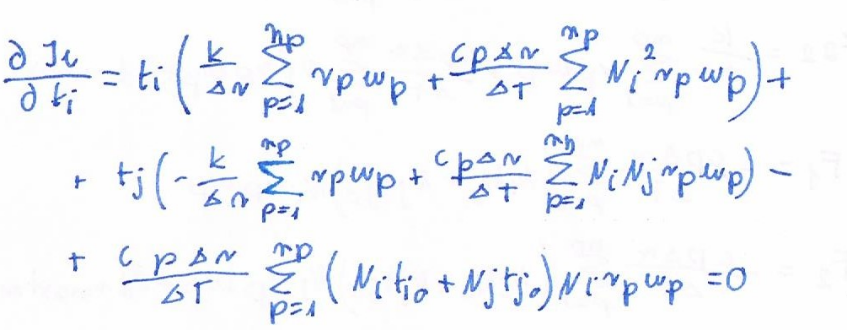 ∂Je/∂ti = ti (k/Δr ∑_{p=1}^{np} rp wp + cpΔr/ΔT ∑_{p=1}^{np} Ni² rp wp) +
+ tj (- k/Δr ∑_{p=1}^{np} rp wp + cpΔr/ΔT ∑_{p=1}^{np} Ni Nj rp wp) -
+ cpΔr/ΔT ∑_{p=1}^{np} (Ni ti₀ + Nj tj₀) Ni rp wp = 0